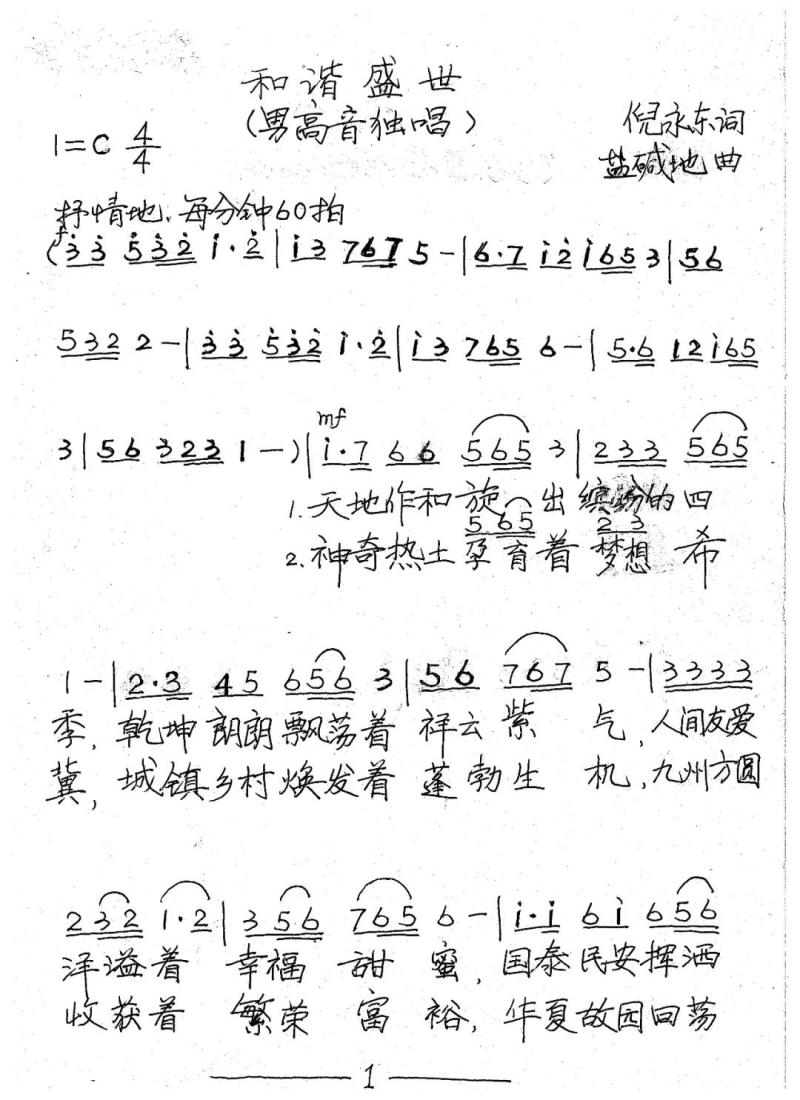 和谐盛世
(男高音独唱)
1=C 4/4
倪永东词
盐碱地曲
抒情地、每分钟60拍
f
(3̇3̇ 5̇3̇2̇ 1̇·2̇|1̇3 767 5-|6·7 1̇2̇1̇65 3|56
5322 2-|3̇3̇ 5̇3̇2̇ 1̇·2̇|1̇3 765 6-|5·6 121̇65
mf
3|56 323 1-)|1̇·7 66 565 3|233 565
1.天地作和旋 出缤纷的四
565 23
2.神奇热土孕育着梦想 希
1-|2·3 45 656 3|56 767 5-|3333
季,乾坤朗朗飘荡着 祥云紫 气,人间友爱
冀,城镇乡村焕发着 蓬勃生 机,九州方圆
232 1·2|356 765 6-|1̇·1̇ 61̇ 656
洋溢着 幸福 甜 蜜,国泰民安挥洒
收获着 繁荣 富 裕,华夏故园回荡
1